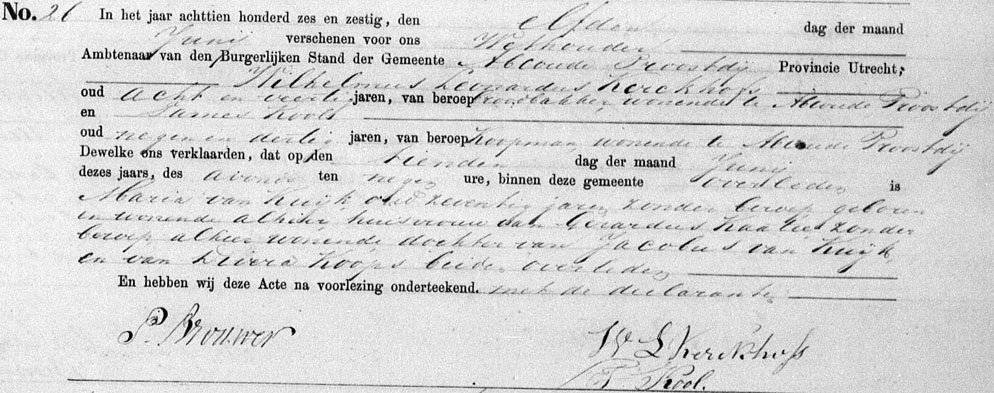 No. 26 In het jaar achttien honderd zes en zestig, den elfden dag der maand
Junij verschenen voor ons Wethouder
Ambtenaar van den Burgerlijken Stand der Gemeente Abcoude Proostdij Provincie Utrecht,
Wilhelmus Leonardus Kerckhofs
oud acht en veertig jaren, van beroep Broodbakker wonende te Abcoude Proostdij
en Kool
oud negen en dertig jaren, van beroep Koopman wonende te Abcoude Proostdij
Dewelke ons verklaarden, dat op den tienden dag der maand Junij
dezes jaars, des avonds ten negen ure, binnen deze gemeente overleden is
Maria van Kuijk oud zeventig jaren zonder beroep geboren
en wonende alhier huisvrouw van Gerardus zonder
beroep alhier wonende dochter van Jacobus van Kuijk
en van Koops beiden overleden
En hebben wij deze Acte na voorlezing onderteekend. met de declaranten
P. Brouwer
W L Kerckhofs
Kool.